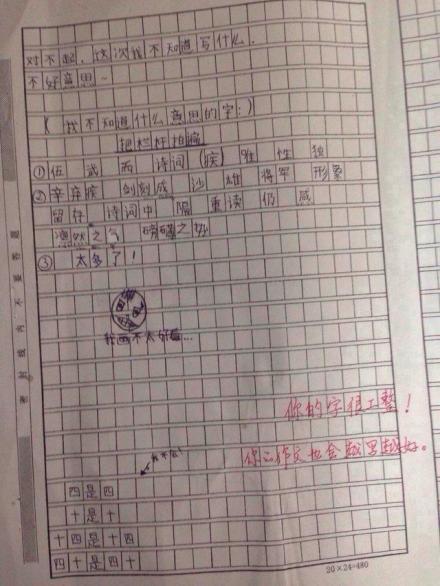 对不起，这次我不知道写什么。
不好意思~
（我不知道什么意思的字：）
把栏杆拍遍
① 伍 武 而 诗词 疾 雅 性 独
② 辛弃疾 剑刻成 沙 雄 将军 形象
留存 诗词中 隔 重读 仍 感
浩然之气 磅礴之势
③ 太多了！
我画不太好看...
你的字很工整！
你的作文也会越写越好。
四是四
十是十
十四是十四
四十是四十
20×24=480